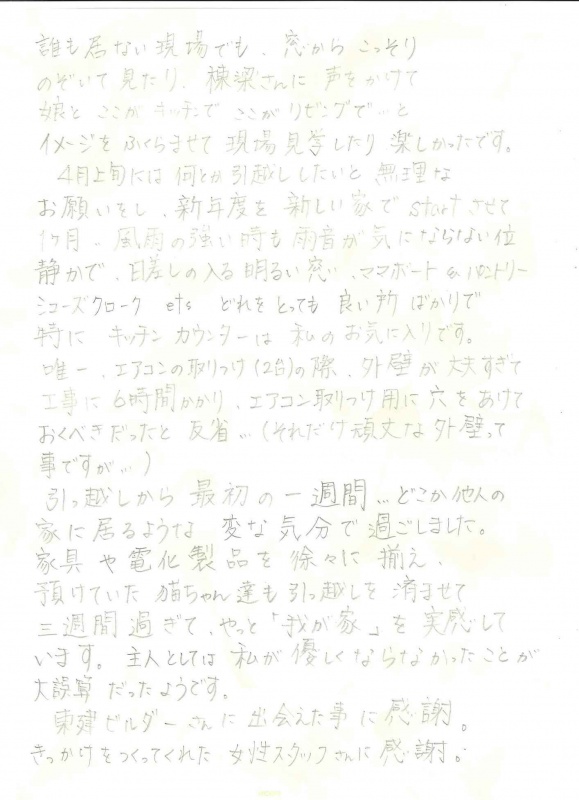 誰も居ない現場でも、窓からこっそり
のぞいて見たり、棟梁さんに声をかけて
娘とここがキッチンでここがリビングで…と
イメージをふくらませて現場見学したり楽しかったです。
4月上旬には何とか引越ししたいと無理な
お願いをし、新年度を新しい家でstartさせて
1ヶ月…風雨の強い時も雨音が気にならない位
静かで、日差しの入る明るい窓、ママボート&パントリー
シューズクローク ets どれをとっても良い所ばかりで
特にキッチンカウンターは私のお気に入りです。
唯一、エアコンの取りつけ(2台)の際、外壁が丈夫すぎて
工事に6時間かかり、エアコン取りつけ用に穴をあけて
おくべきだったと反省…(それだけ頑丈な外壁って
事ですが…)
引っ越しから最初の一週間…どこか他人の
家に居るような変な気分で過ごしました。
家具や電化製品を徐々に揃え、
預けていた猫ちゃん達も引っ越しを済ませて
三週間過ぎて、やっと「我が家」を実感して
います。主人としては私が優しくならなかったことが
大誤算だったようです。
東建ビルダーさんに出会えた事に感謝。
きっかけをつくってくれた女性スタッフさんに感謝。